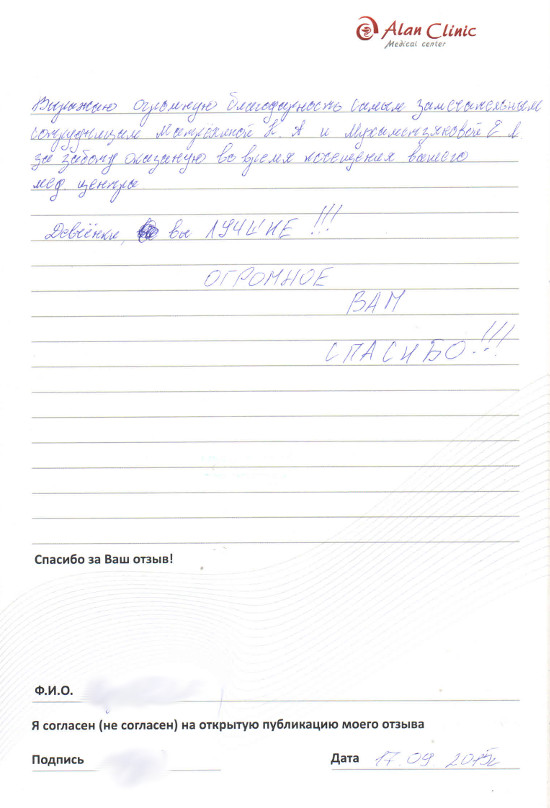 Alan Clinic
Medical center
Выражаю огромную благодарность самым замечательным
сотрудницам Матрёхиной К. А и Мухаметзяновой Е в
за заботу оказаную во время посещения вашего
мед центра
Девчёнки, вы ЛУЧШИЕ!!!
ОГРОМНОЕ
ВАМ
СПАСИБО!!!
Спасибо за Ваш отзыв!
Ф.И.О.
Я согласен (не согласен) на открытую публикацию моего отзыва
Подпись
Дата 17.09 2015г